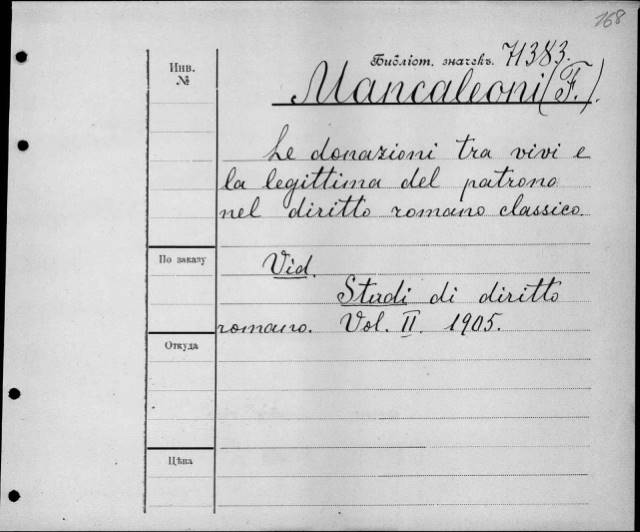 168
Библіот. значекъ. 71383.
Инв.
№
Mancaleoni (F.).
Le donazioni tra vivi e
la legittima del patrono
nel diritto romano classico.
По заказу
Vid.
Studi di diritto
romano. Vol. II. 1905.
Откуда
Цѣна